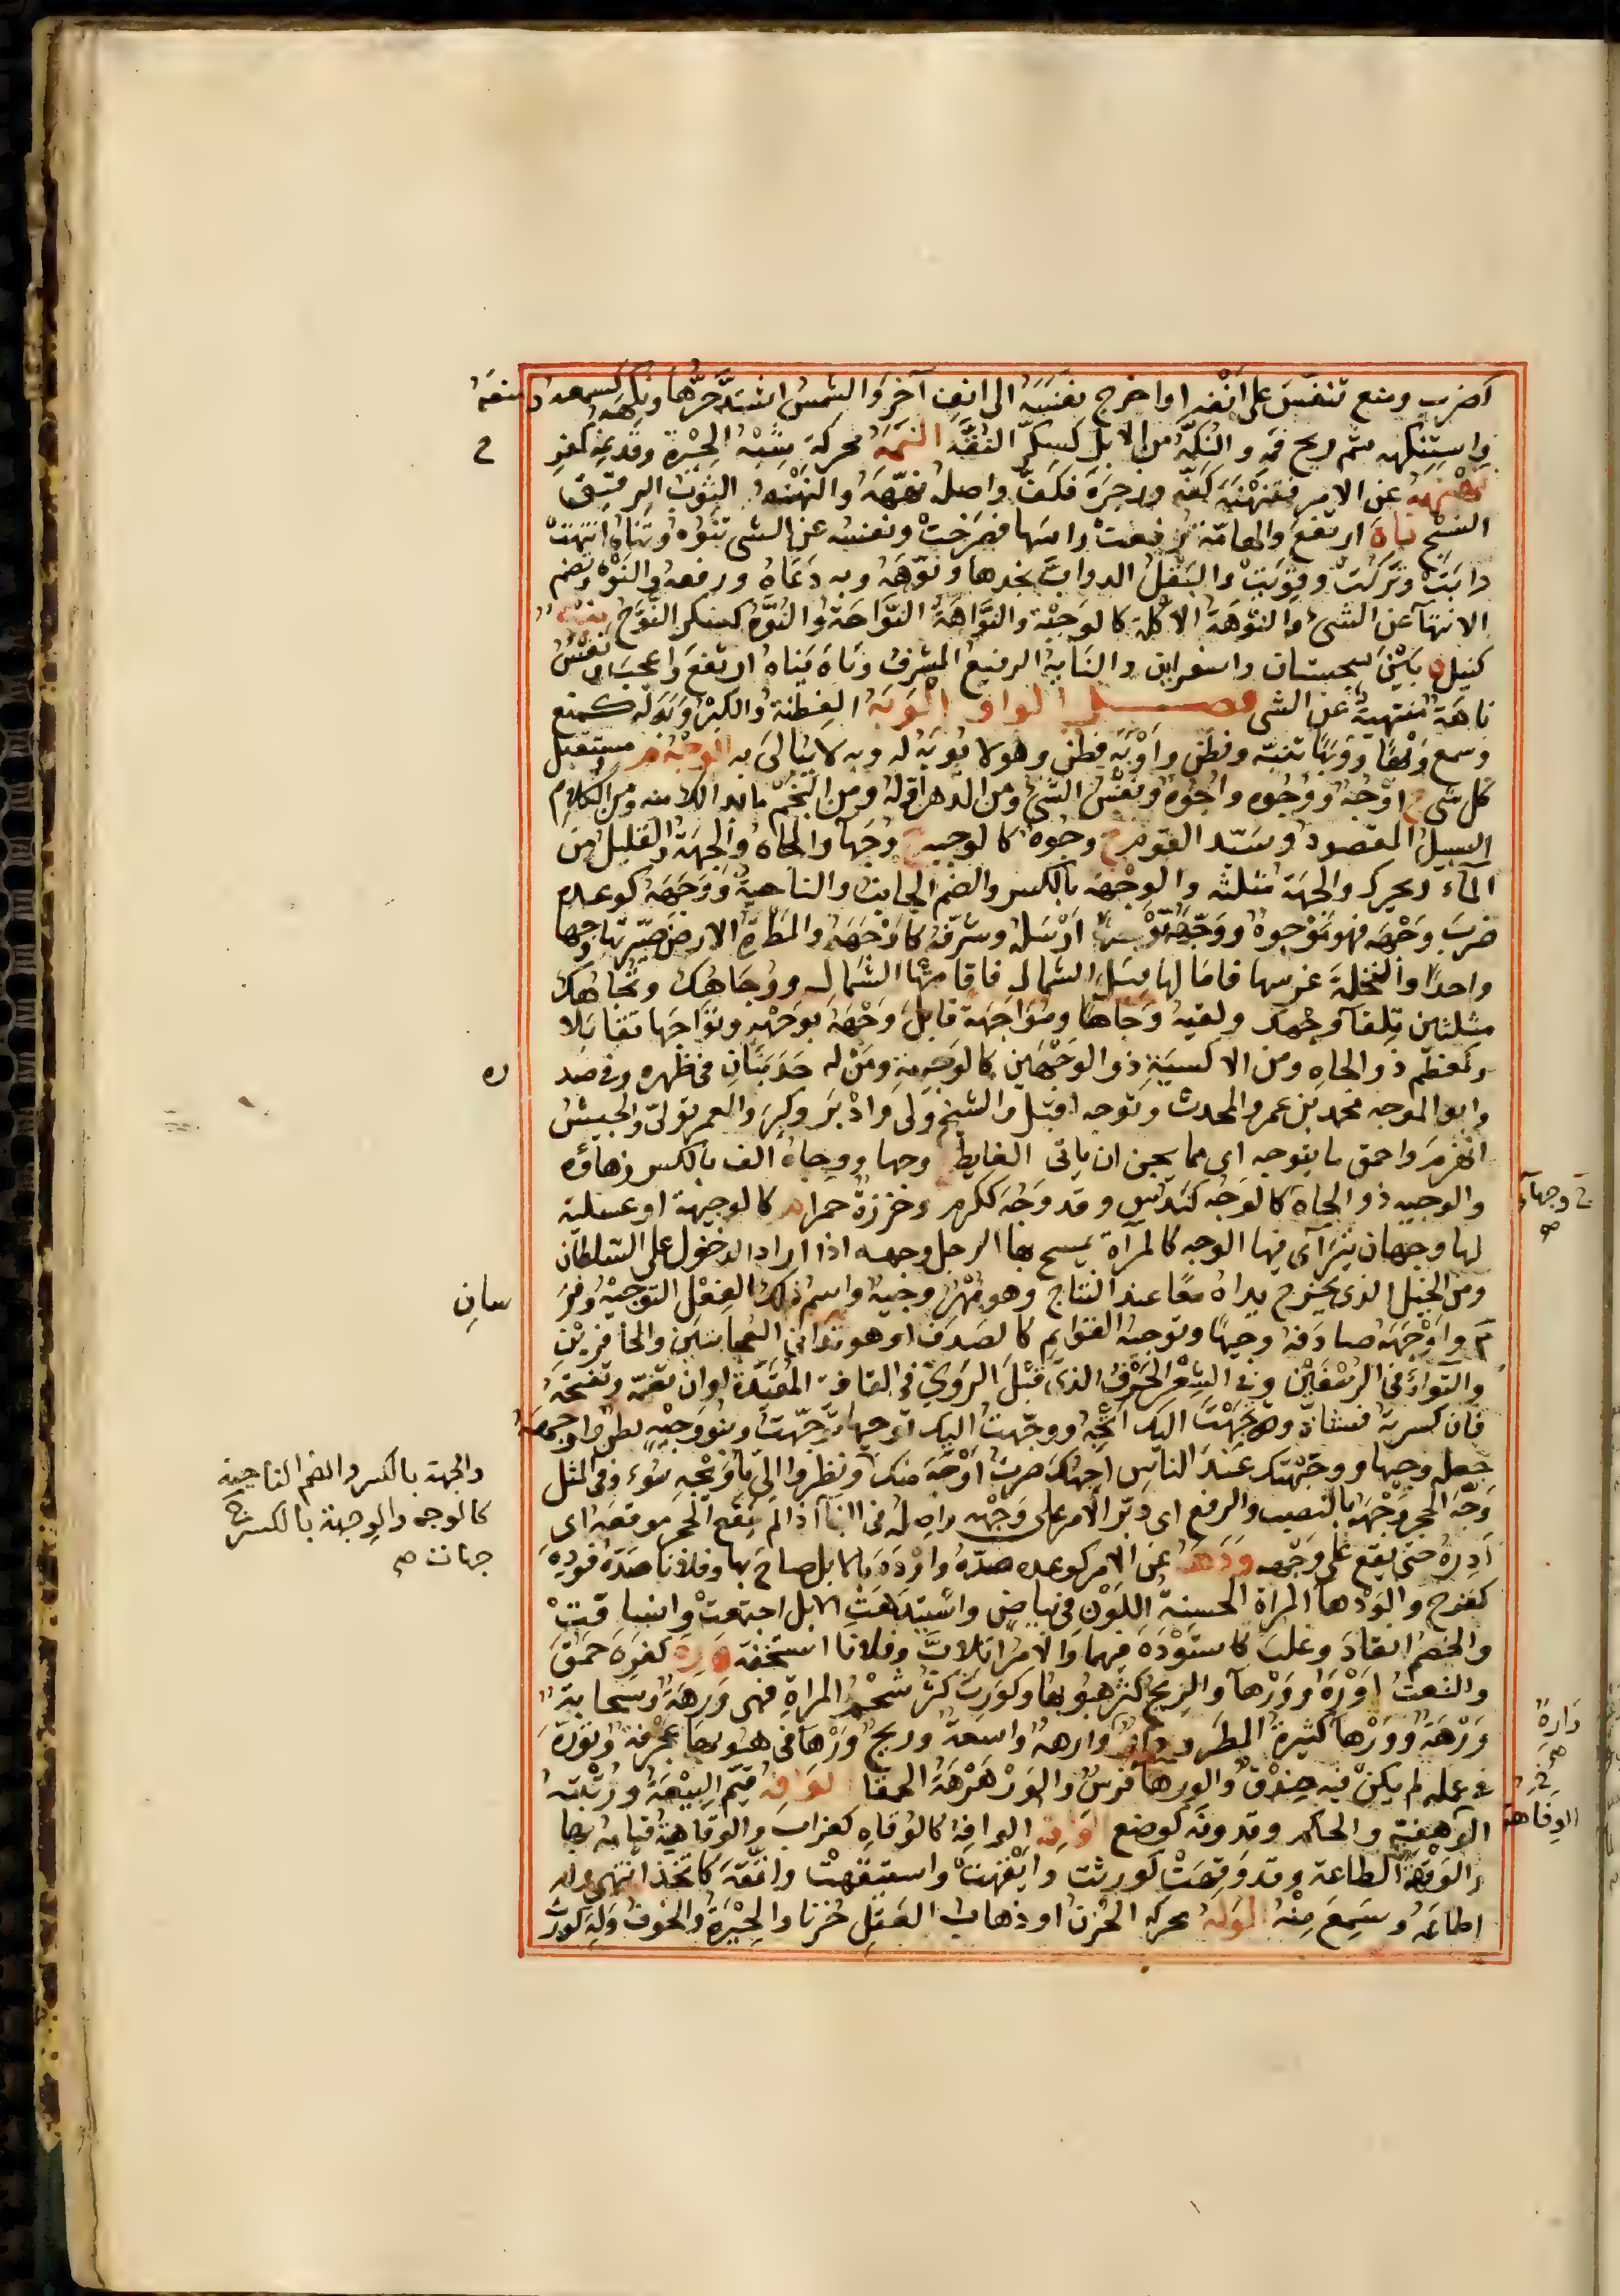 كضرب ومنع تنفس على انفه او اخرج نفسه الى انف آخر والشمس اشتد حرها ونكهه كسمعه ومنعه
واستنكهه شم ريح فمه والنكه من الابل كسكر النقه النمه محركة شبه الحيرة وقد نمه كفرح
نهنهه عن الامر فتنهنه كفه وزجره فكف واصله نههه والنهنه الثوب الرقيق
النسج ناه ارتفع والهامة رفعت راسها فصرخت ونفسه عن الشى تنوه وتناه انتهت
وابت وتركت وقويت والبقل الدواب مجدها ونوهه وبه دعاه ورفعه والنوه ويضم
الانتهآ عن الشئ والنوهة الاكلة كالوجبة والنواهة النواحة والنوه كسكر النوح نيه
كنيل د بين سجستان واسفراين والنايه الرفيع المشرف وناه يناه ارتفع واعجب ونفس
ناهة منتهية عن الشى فصل الواو الوبه الفطنة والكبر وبه له كمنع
وسمع وبها ووبها تنبه وفطن واوبه فطن وهو لا يوبه له وبه لا يبالى به الوجه م مستقبل
كل شى ج اوجه ووجوه واجوه ونفس الشئ ومن الدهر اوله ومن النجم ما بدا لك منه ومن الكلام
السبيل المقصود وسيد القوم ج وجوه كالوجيه ج وجهآ والجاه والجهة والقليل من
المآء ويحرك والجهة مثلثه والوجهه بالكسر والضم الجانب والناحية ووجهه كوعده
ضرب وجهه فهو موجوه ووجهه توجيها ارسله وشرفه كاوجهه والمطرة الارض صيرتها وجها
واحدا والنخلة غرسها فامالها قبل الشمال فاقامتها الشمال ووجاهك وتجاهك
مثلثين تلقآ وجهك ولقيه وجاها ومواجهة قابل وجهه بوجهه وتواجها تقابلا
وكمعظم ذو الجاه ومن الاكسية ذو الوجهين كالوجيهة ومن له حدبتان فى ظهره وفى صد ره
وابو الموجه محمد بن عمرو المحدث وتوجه اقبل والشيخ ولى وادبر وكبر والعمر تولى والجيش
انهزم واحمق ما يتوجه اى ما يحسن ان ياتى الغايط وجها ووجاه الف بالكسر زهاؤه
والوجيه ذو الجاه كالوجه كندس وقد وجه ككرم وخرزة حمرا م كالوجيهة او عسلية
لها وجهان يترآى فيها الوجه كالمرآة يمسح بها الرجل وجهه اذا اراد الدخول على السلطان
ومن الخيل الذى يخرج يداه معا عند النتاج وهو مهر وجيه واسم ذلك الفعل التوجيه وفر سان
م واوجهه صادفه وجيها وتوجيه القوايم كالصدف او هو تدانى العجايتين والحافرين
والتوآء فى الرسغين وفى الشعر الحرف الذى قبل الروى فى القافية المقيدة او ان تضمه وتفتحه
فان كسرته فسناد ووجهت اليك اتجه ووجهت اليك توجيها توجهت وبنو وجيه بطن واوجهه
جعله وجيها ووجهتك عند الناس اجهك صرت اوجه منك ونظروا الى باويجه سوء وفى المثل
وجه الحجر وجهة بالنصب والرفع اى دبر الامر على وجهه واصله فى البنآ اذا لم يقع الحجر موقعه اى
ادره حتى يقع على وجهه ودهه عن الامر كوعده صده واودهه بالابل صاح بها وفلانا صده فوده
كفرح والودهآ المراة الحسنة اللون فى بياض واستيدهت الابل اجتمعت وانساقت
والخصم انقاد وغلب كاستوده فيهما والامر اتلاب وفلانا استخفه وره كفرح حمق
والنعت اوره وورهآ والريح كثر هبوبها وكورث كثر شحم المراة فهى ورهة وسحابة
ورهة وورهآ كثيرة المطر ودار وارهة واسعة وريح ورهآ فى هبوبها عجرفة وتوره
فى عمله لم يكن فيه حذق والورهآ فرس والورهرهة الحمقآ الوافه قيم البيعة ورتبته
الوفهية والحكم وقد وفه كوضع الواقه الوافه كالوقاه كغراب والوقاهية قيامه بها
والوقه الطاعة وقد وقهت كورثت وايقهت واستيقهت واتقه كاتخذ انتهى وله
اطاعه وسمع منه الوله محركه الحزن او ذهاب العقل حزنا والحيرة والخوف وله كورث
ج وجهآ
صح
والجهة بالكسر والضم الناحية
كالوجه والوجهة بالكسر ج
جهات صح
دارة
الوفاهة